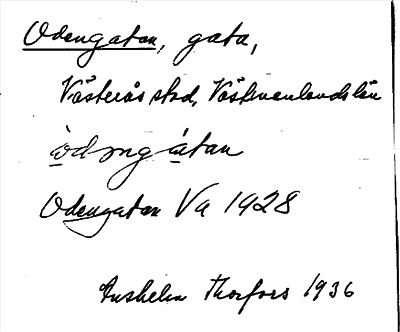 Odengatan, gata,
Västerås stad, Västmanlands län
òdǝngàtan
Odengatan Va 1928
Thorfors 1936